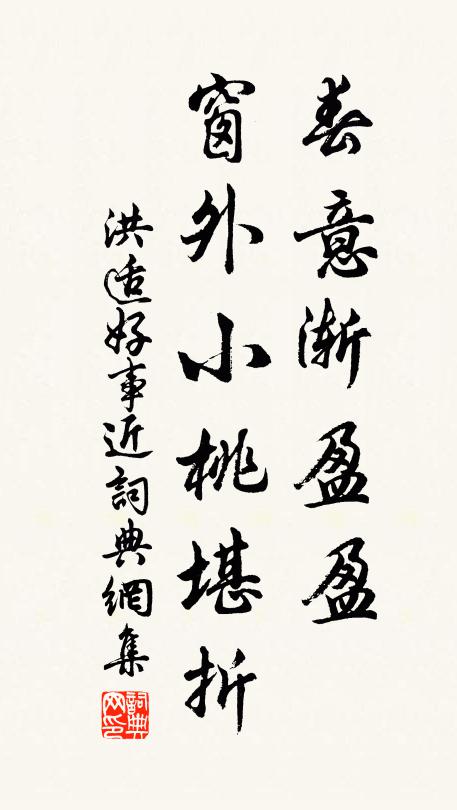 春意渐盈盈
窗外小桃堪折
洪适好事近詞典網集
詞典网印